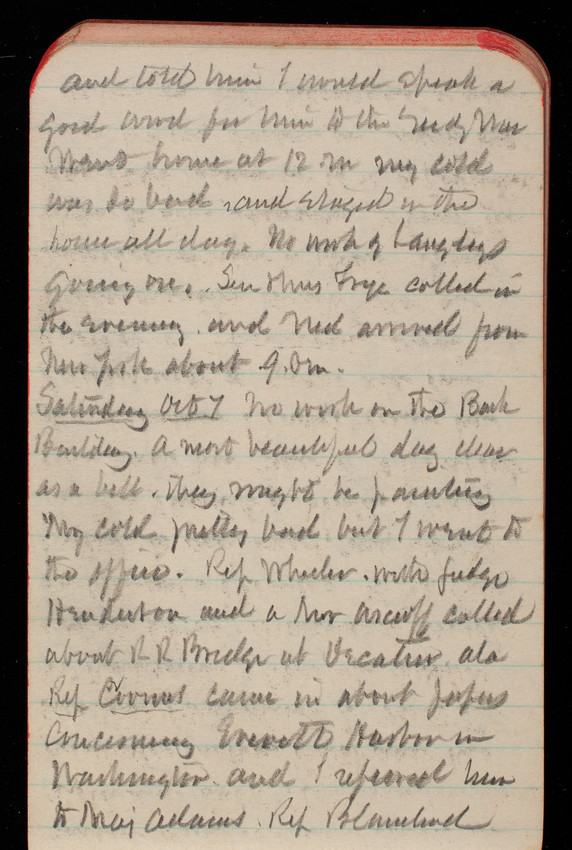 and told him I would speak a
good word for him to the Secy War
Went home at 12 m my cold
was so bad, and stayed in the
house all day. No work of Langleys
going on. Genl & Mrs Frye called in
the evening. and Ned arrived from
New York about 9. Pm.
Saturday Oct 7 No work on the Back
Building. A most beautiful day clear
as a bell. they might be painting
My cold pretty bad but I went to
the office. Rep Wheeler. with Judge
Henderson and a Mr called
about R R Bridge at Decatur ala
Rep came in about papers
concerning Everett Harbor in
Washington and I referred him
to Maj Adams. Rep Blanchard